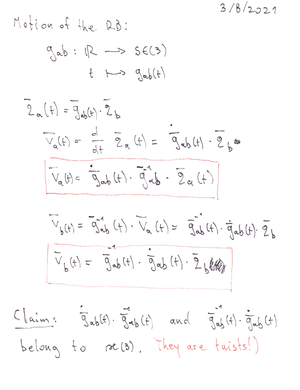 3/8/2021
Motion of the RB:
gab : ℝ → SE(3)
t ↦ gab(t)
q̄a(t) = ḡab(t) · q̄b
v̄a(t) = d/dt q̄a(t) = ġ̄ab(t) · q̄b
v̄a(t) = ġ̄ab(t) · ḡ⁻¹ab · q̄a(t)
v̄b(t) = ḡ⁻¹ab(t) · v̄a(t) = ḡ⁻¹ab(t) · ġ̄ab(t) · q̄b
v̄b(t) = ḡ⁻¹ab(t) · ġ̄ab(t) · q̄b
Claim: ġ̄ab(t) · ḡ⁻¹ab(t) and ḡ⁻¹ab(t) · ġ̄ab(t)
belong to se(3). They are twists!)